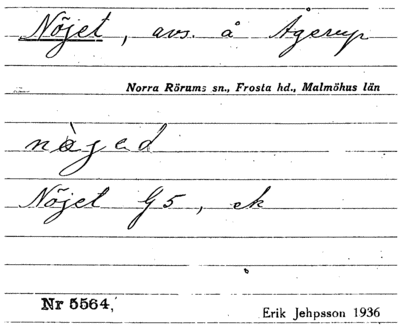 Nöjet, avs. å Ågerup
Norra Rörums sn., Frosta hd., Malmöhus län
nöjed
Nöjet G5, ek
Nr 5564,
Erik Jehpsson 1936